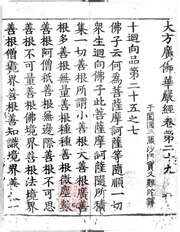 大方廣佛華嚴經卷第二十九
于闐國三藏沙門實叉難陀譯
十迴向品第二十五之七
佛子云何為菩薩摩訶薩等隨順一切
眾生迴向佛子此菩薩摩訶薩隨所積
集一切善根所謂小善根大善根廣善
根多善根無量善根種種善根微塵數
善根阿僧祇善根無邊際善根不可思
善根不可量善根佛境界善根法境界
善根僧境界善根善知識境界善根一